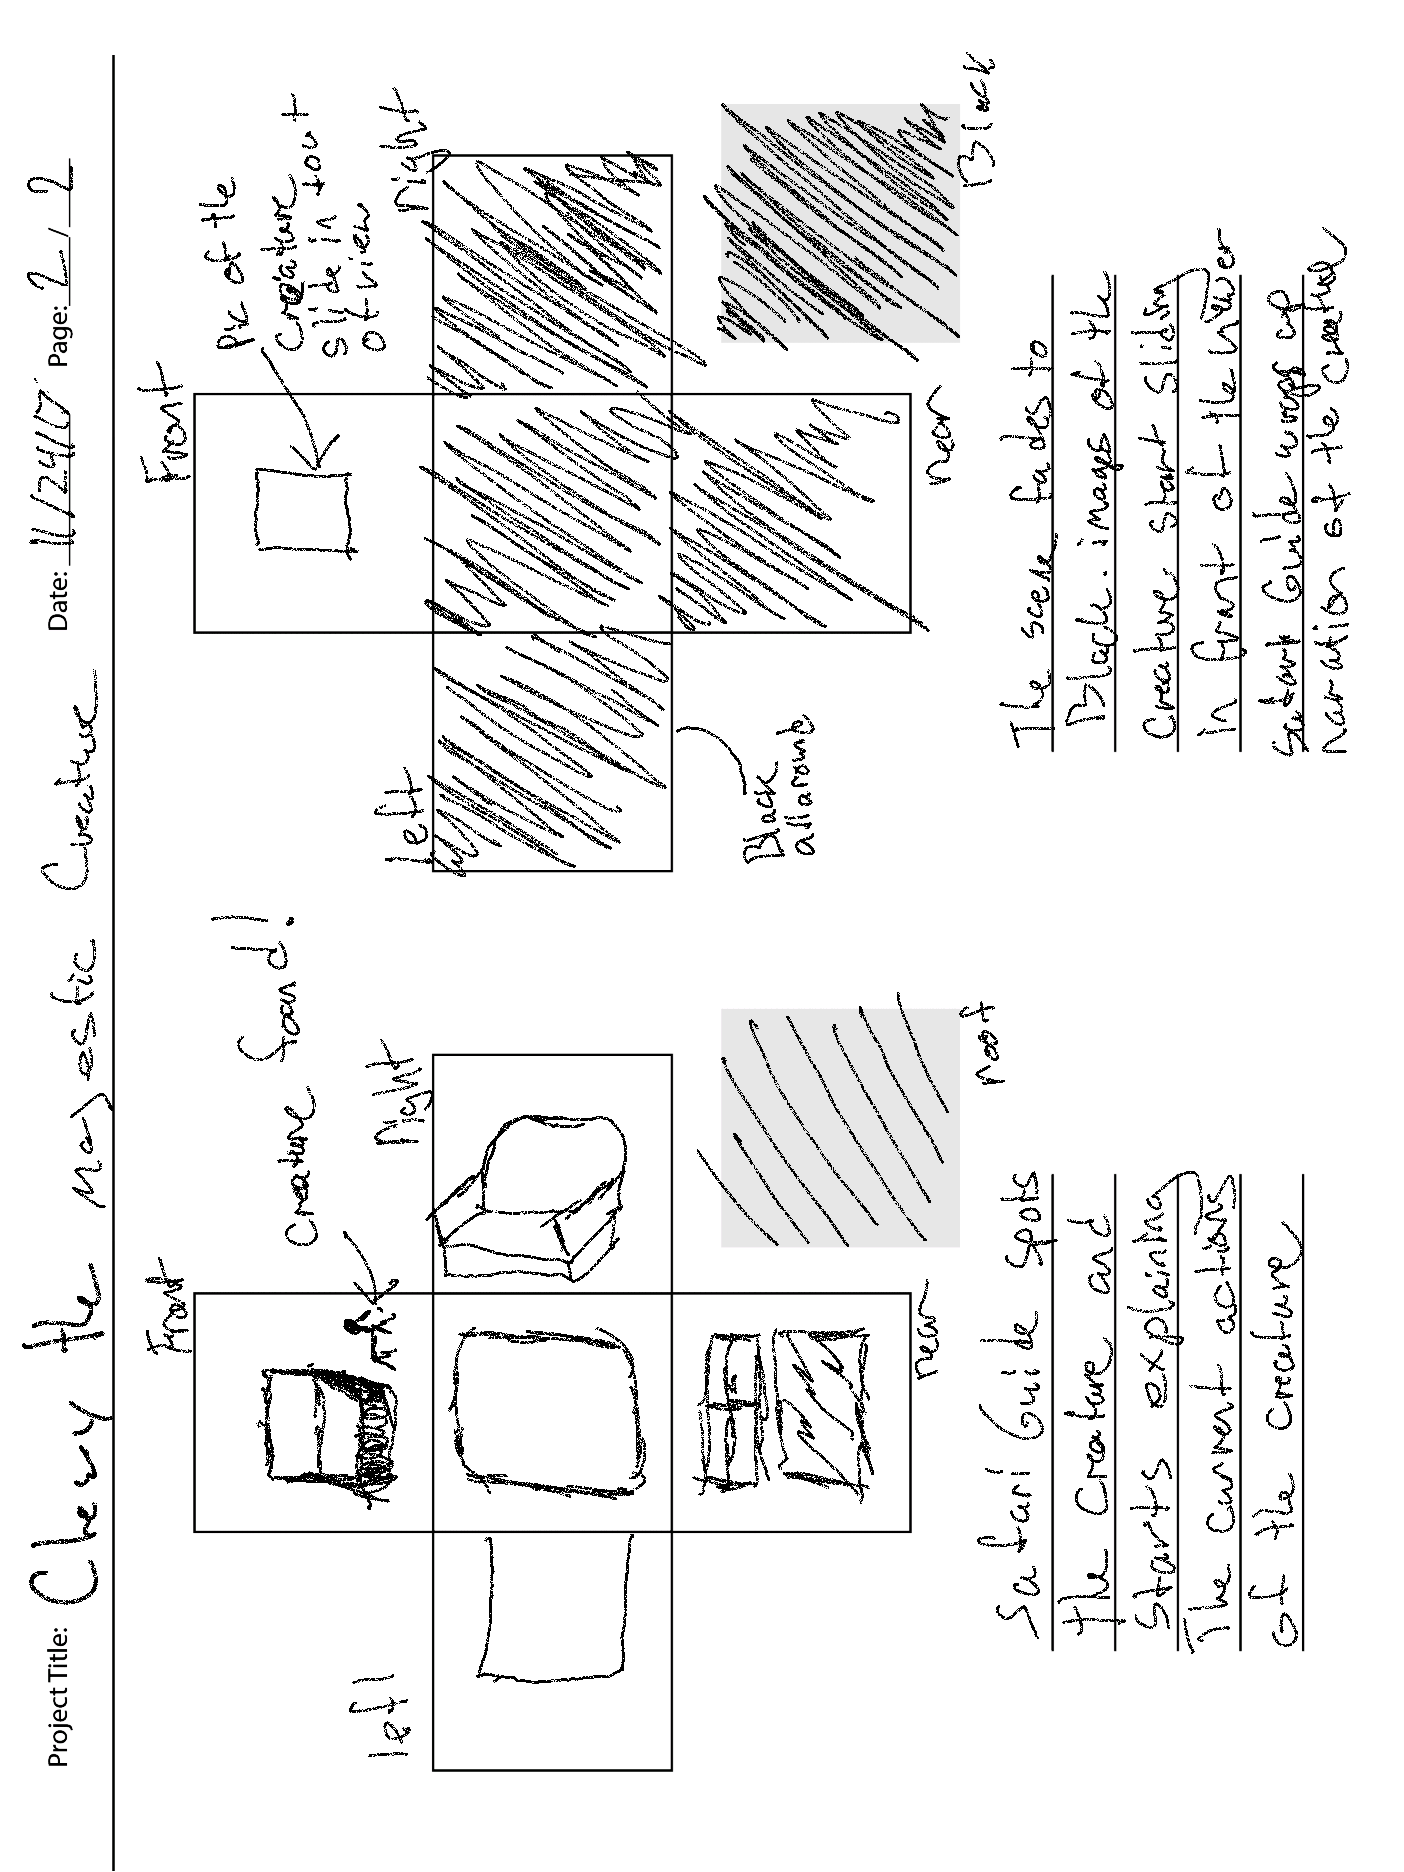 Project Title: Chewy the majestic Creature Date: 11/24/17 Page: 2 / 2
Creature found!
Front
left
right
rear
roof
Safari Guide spots
the creature and
starts explaining
The current actions
of the creature
Pic of the
creature
slide in tout
of view
Front
left
right
rear
Black
Black
all around
The scene fades to
Black. images of the
creature start sliding
in front of the viewer
Safari Guide wraps up
naration of the creature